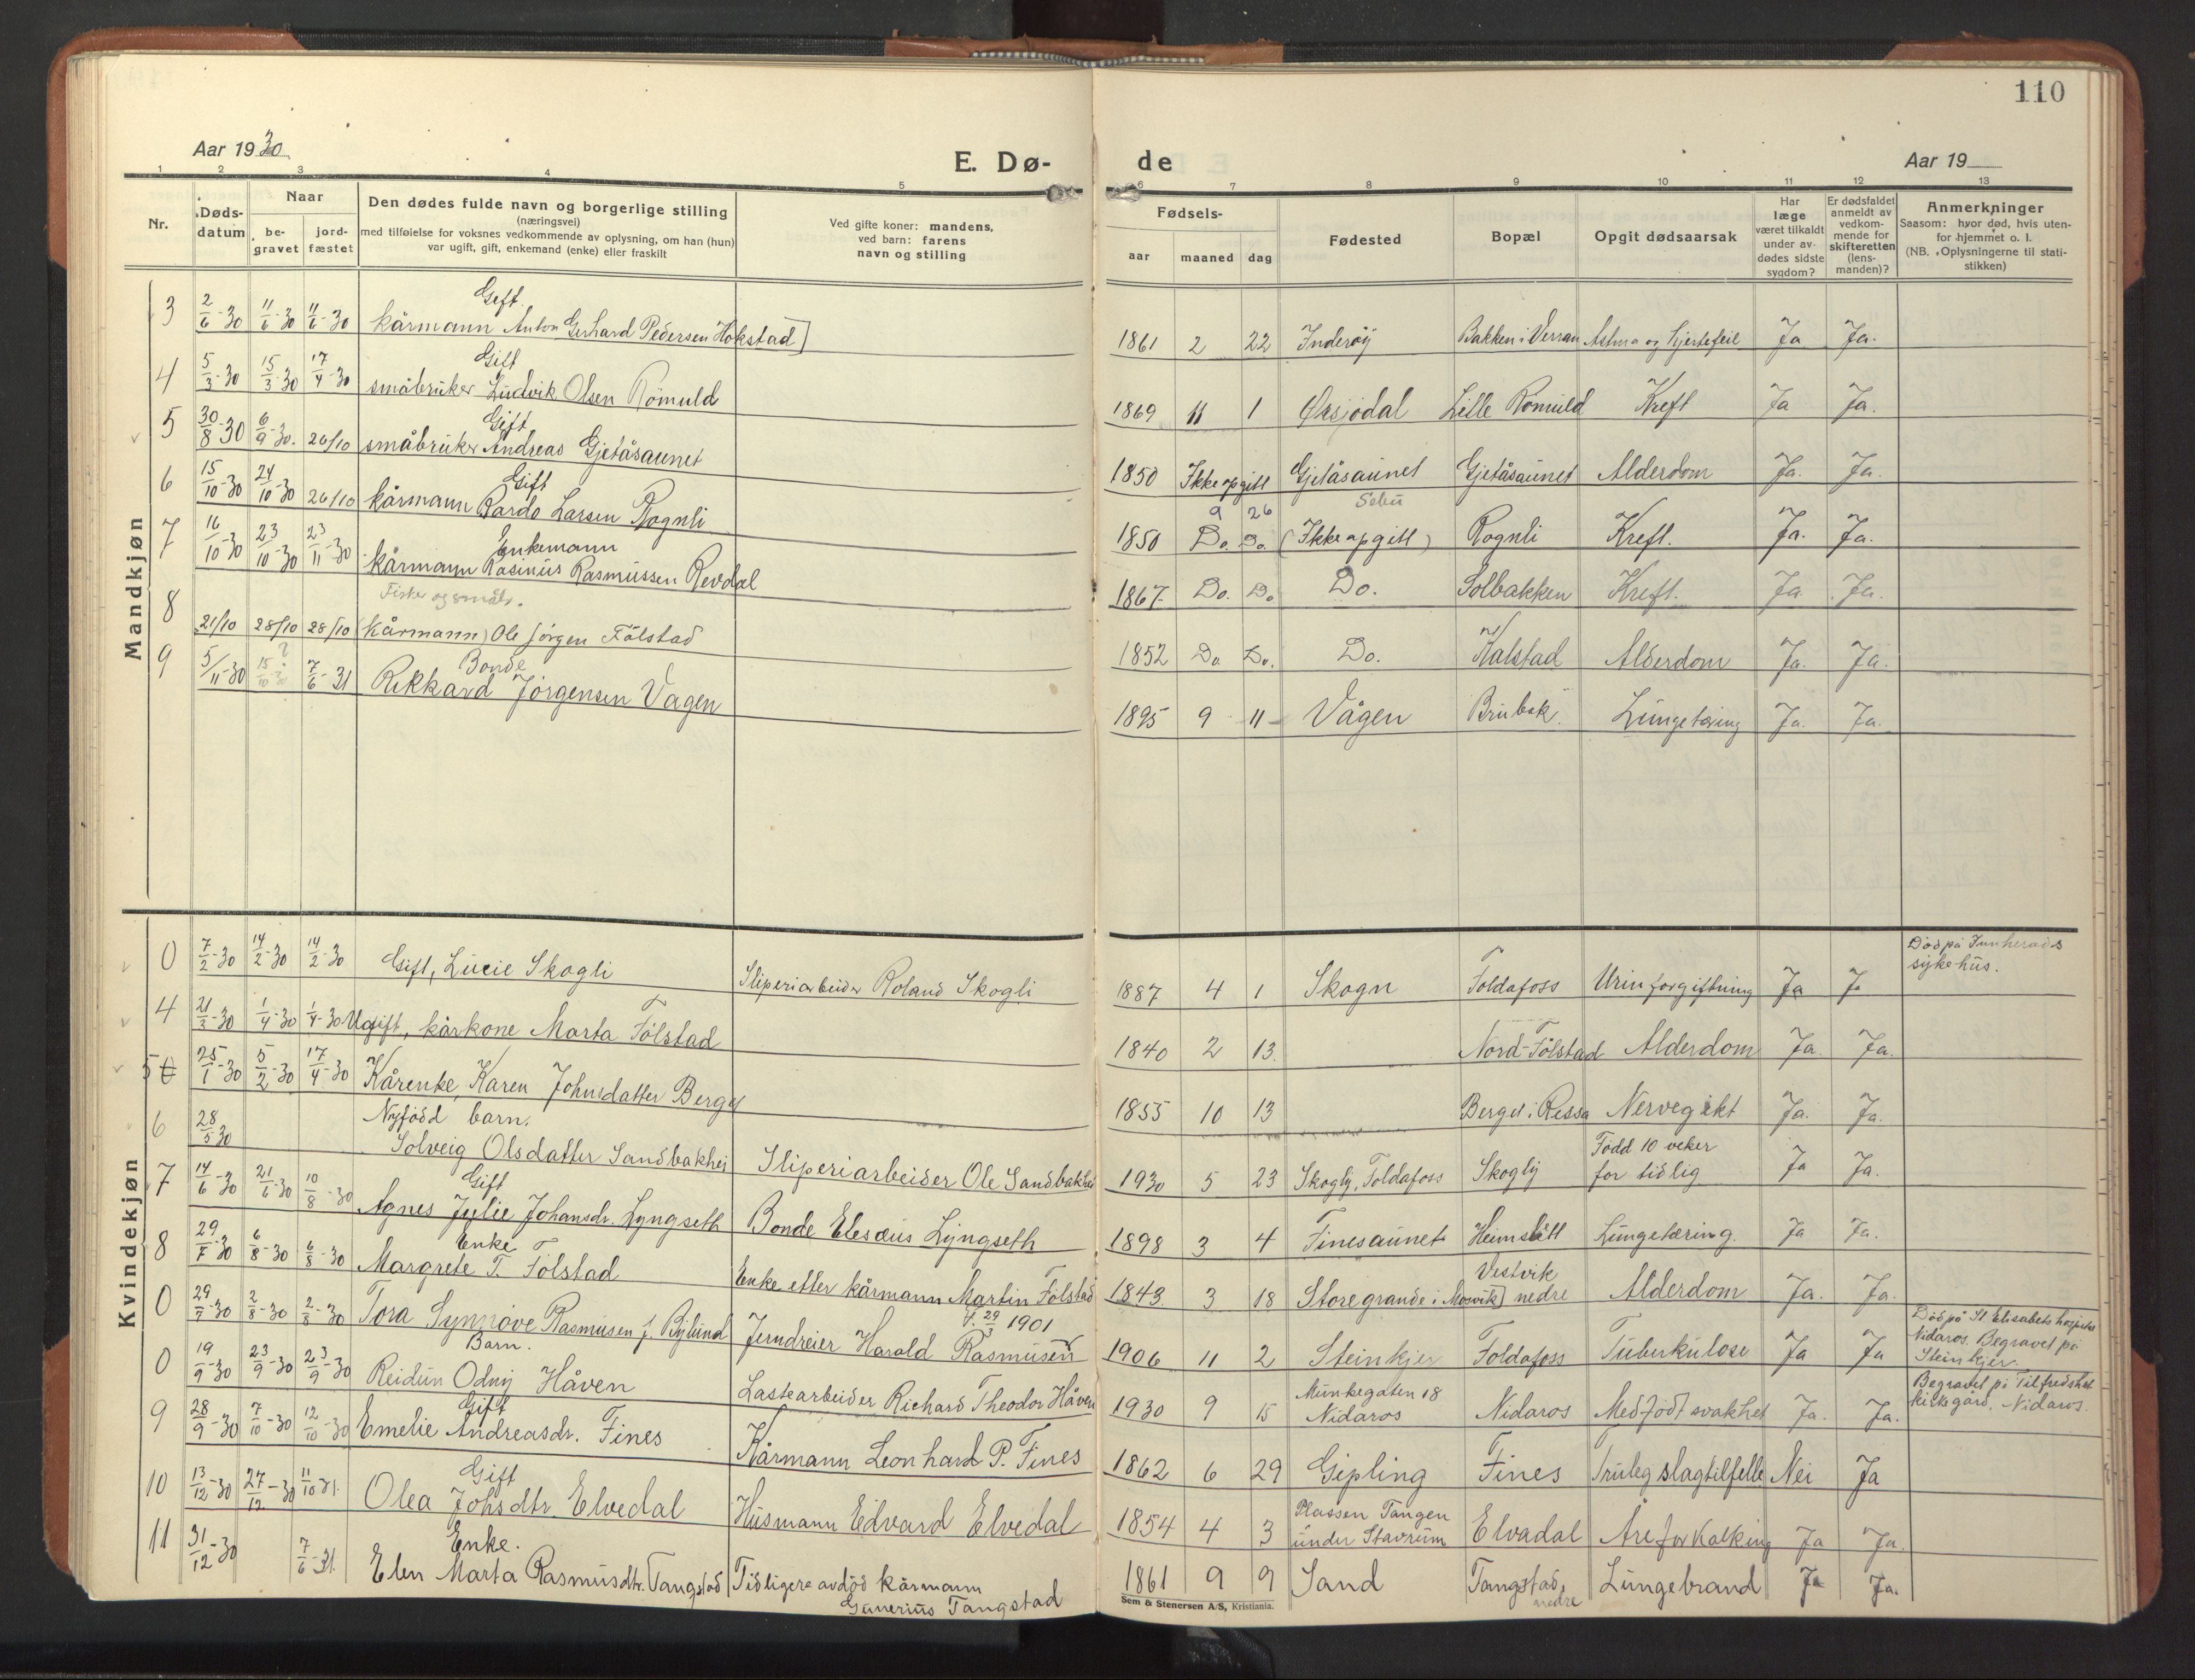 110
Aar 1930
E. Dø-
de
Aar 19
1 2 3 4 5 6 7 8 9 10 11 12 13
Nr.
Døds-
datum
Naar
be-
gravet
jord-
fæstet
Den dødes fulde navn og borgerlige stilling
(næringsvei)
med tilføielse for voksnes vedkommende av oplysning, om han (hun)
var ugift, gift, enkemand (enke) eller fraskilt
Ved gifte koner: mandens,
ved barn: farens
navn og stilling
Fødsels-
aar maaned dag
Fødested
Bopæl
Opgit dødsaarsak
Har
læge
været tilkaldt
under av-
dødes sidste
sygdom?
Er dødsfaldet
anmeldt av
vedkom-
mende for
skifteretten
(lens-
manden)?
Anmerkninger
Saasom: hvor død, hvis uten-
for hjemmet o. l.
(NB. Oplysningerne til stati-
stikken)
Mandkjøn
Gift.
3 2/6-30 11/6-30 11/6-30 kårmann Anton Gerhard Pedersen Hokstad] 1861 2 22 Inderøy Bakken i Verran Astma og hjertefeil Ja Ja.
Gift
4 5/3-30 15/3-30 17/4-30 småbruker Ludvik Olsen Römuld 1869 11 1 Øksjödal Lille Römuld Kreft Ja Ja.
Gift
5 30/8-30 6/9-30. 26/10 småbruker Andreas Gjetåsaunet 1850 Ikke opgitt Gjetåsaunet Gjetåsaunet Alderdom Ja. Ja.
Gift
6 15/10-30 24/10-30 26/10 kårmann Bardo Larsen Rognli 1850 9 26 Do. Do. (Ikke opgitt) Rognli Kreft. Ja. Ja.
Enkemann
7 16/10-30 23/10-30 23/11-30 kårmann Rasmus Rasmussen Revdal 1867 Do. Do. Do. Solbakken Kreft. Ja Ja.
Fisker og småbr.
8 21/10 28/10 28/10 (kårmann) Ole Jørgen Fölstad 1852 Do Do. Do. Kalstad Alderdom Ja. Ja.
Bonde
9 5/11-30 15/10-30 ? 7/6-31 Rikkard Jörgensen Vagen 1895 9 11 Vågen Brubak. Lungetæring Ja. Ja.
Kvindekjøn
Död på Innherads
sykehus.
0 7/2-30 14/2-30 14/2-30 Gift, Lucie Skogli Sliperiarbeider Roland Skogli 1887 4 1 Skogn Foldafoss Urinforgiftning Ja Ja
4 21/3-30 1/4-30 1/4-30 Ugift, kårkone Marta Fölstad 1840 2 13. Nord-Fölstad Alderdom Ja. Ja.
5 25/1-30 5/2-30 17/4-30 Kårenke, Karen Johnsdatter Berget 1855 10 13 Berget i Ressa Nervegikt Ja. Ja.
Nyfödd barn.
6 28/5 30 Solveig Olsdatter Sandbakhei Sliperiarbeider Ole Sandbakhei 1930 5 23 Skogly, Foldafoss Skogly Född 10 veker
for tidlig Ja Ja.
Gift
7 14/6-30 21/6-30 10/8-30 Agnes Julie Johansdr. Lyngseth Bonde Elesæus Lyngseth 1898 3 4 Finesaunet Heimslått Lungetæring. Ja Ja.
Enke
8 29/7-30 6/8-30 6/8-30 Margrete T. Fölstad Enke etter kårmann Martin Fölstad 1843 3 18 Storegrande i Mosvik Vestvik
nedre Alderdom Ja. Ja.
f. 29/3 1901
0 29/7-30 2/8-30 2/8-30 Tora Synnöve Rasmusen f. Bylund Jerndreier Harald Rasmusen 1906 11 2 Steinkjer Foldafoss Tuberkulose Ja Ja
Död på St Elisabets hospital
Nidaros. Begravet på
Steinkjer.
Barn.
0 19/9-30 23/9-30 23/9-30 Reidun Odny Håven Lastearbeider Richard Theodor Håven 1930 9 15 Munkegaten 18
Nidaros Nidaros Medfödt svakhet Ja. Ja.
Begravet på Tilfredshet
kirkegård, Nidaros.
Gift
9 28/9-30 7/10-30 12/10-30 Emelie Andreasdr. Fines Kårmann Leonhard P. Fines 1862 6 29 Gipling Fines Truleg slagtilfelle Nei Ja
Gift
10 13/12-30 27/12-30 11/10 31. Olea Johsdtr. Elvedal Husmann Edvard Elvedal 1854 4 3 Plassen Tangen
under Stavrum Elvadal Åreforkalking Ja Ja.
Enke.
11 31/12-30 7/6-31. Elen Marta Rasmusdtr. Tangstad Tidligere avdöd kårmann
Gunerius Tangstad 1861 9 9 Sand Tangstad,
nedre Lungebrand Ja Ja.
Sem & Stenersen A/S, Kristiania.